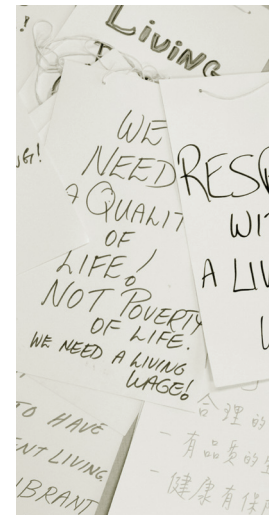 Living
WE
NEED
A QUALIT
OF
LIFE!
NOT POVERTY
OF LIFE.
WE NEED A LIVING
WAGE!
RESP
WIT
A LIV
TO HAVE
ENT LIVING
IBRANT
合理的
一有品質的生
一健康有保